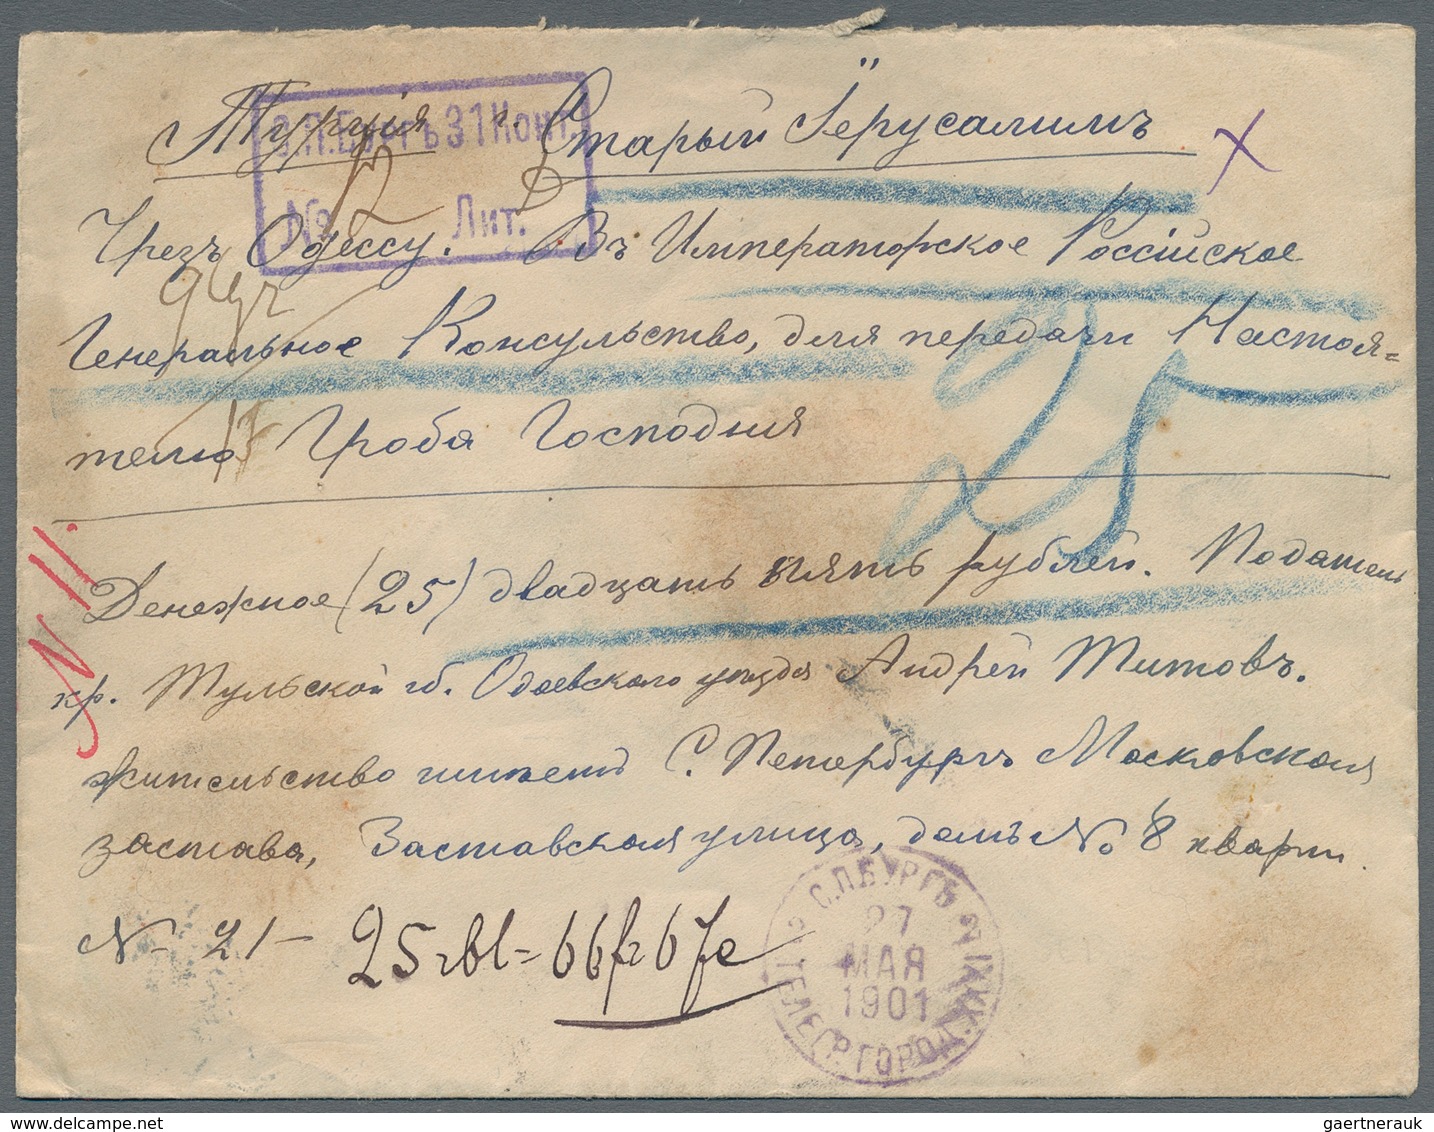 Турція г. Старый Іерусалимъ
С.П.Бургъ 31 Конт.
№ 12 Лит.
Чрезъ Одессу. Въ Императорское Россійское
Генеральное Консульство, для передачи Настоя=
телю Гроба Господня
25
N 11.
Денежное (25) двадцать пять рублей. Податель
кр. Тульской губ. Одоевского уѣзда Андрей Титовъ.
жительство имѣетъ С. Петербургъ Московская
застава, Заставская улица, домъ № 8 кварти.
№ 21 – 25 rbl = 66 fr 67 c
С.П.БУРГЪ
27
МАЯ
1901
ТЕЛЕГР. ГОРОД.
gaertnerauk